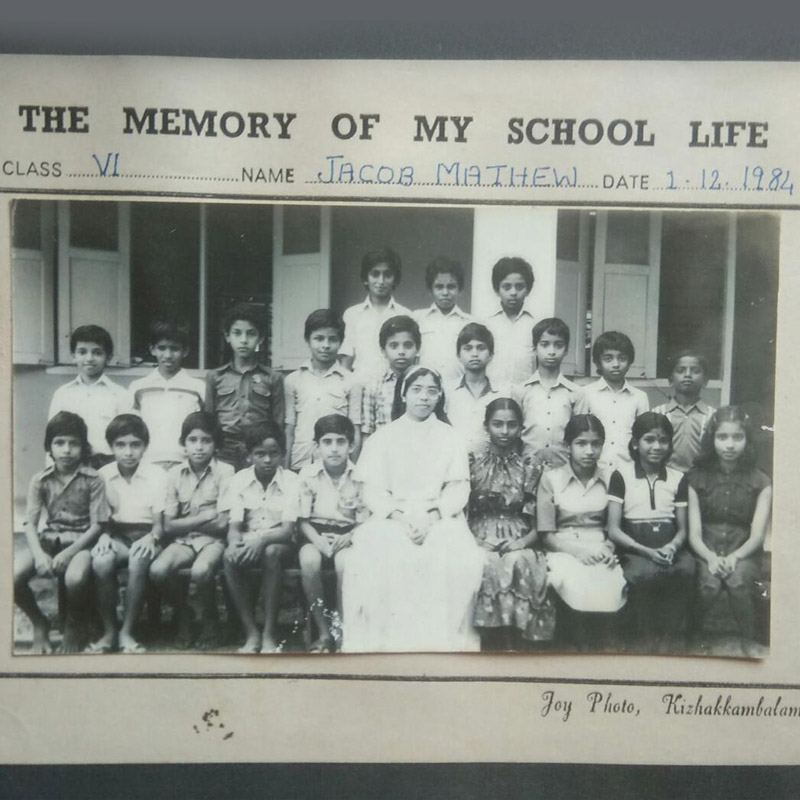 THE MEMORY OF MY SCHOOL LIFE
CLASS VI NAME JACOB MATHEW DATE 1.12.1984
Joy Photo, Kizhakkambalam